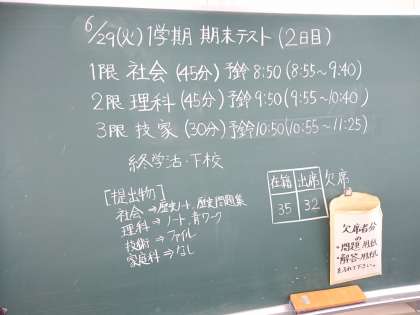 6/29(火) 1学期 期末テスト (2日目)
1限 社会 (45分) 予鈴 8:50 (8:55~9:40)
2限 理科 (45分) 予鈴 9:50 (9:55~10:40)
3限 技家 (30分) 予鈴 10:50 (10:55~11:25)
終学活・下校
[提出物]
社会 ⇒ 歴史ノート、歴史問題集
理科 ⇒ ノート、青ワーク
技術 ⇒ ファイル
家庭科 ⇒ なし
在籍 出席 欠席
35 32
欠席者分
の
"問題"用紙
"解答"用紙
を入れて下さい。